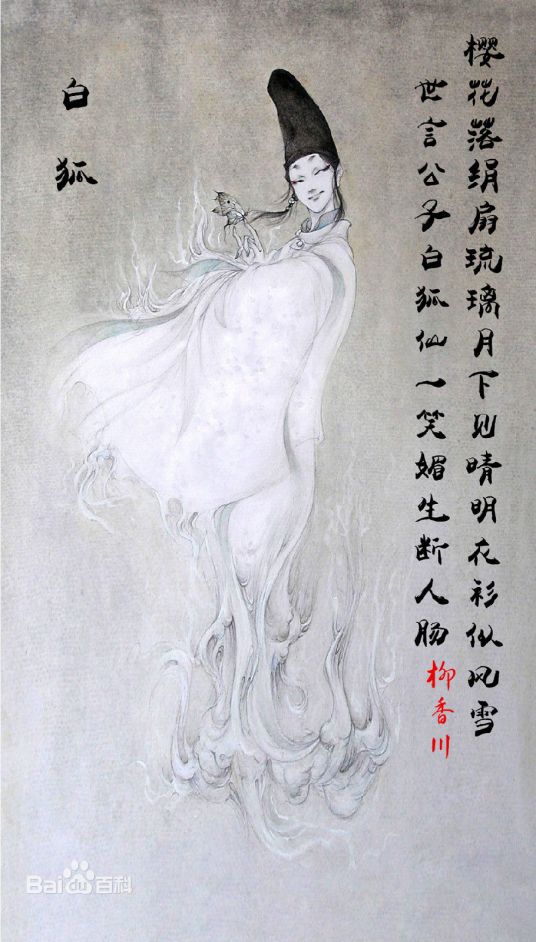 樱花落绢扇琉璃月下见晴明衣衫似风雪
世言公子白狐仙一笑媚生断人肠
柳香川
白狐
Bai百科